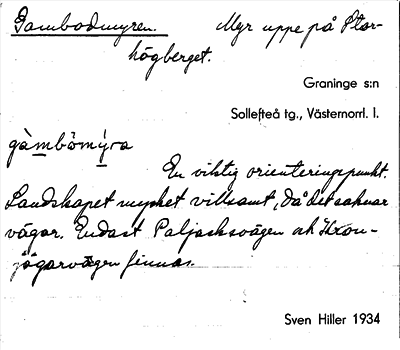 Gambodmyren. Myr uppe på Stor-
högberget.
Graninge s:n
Sollefteå tg., Västernorrl. l.
gàmbömýra
En viktig orienteringspunkt.
Landskapet mycket villsamt, då det saknar
vägar. Endast Paljacksvägen och Kron-
jägarvägen finnas.
Sven Hiller 1934